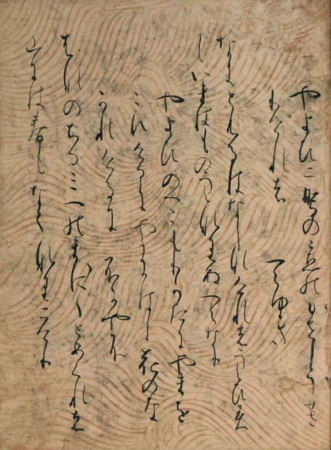 やよひに鶯のこゑのひさしう
りけれは つらゆき
なきとむるはなしなけれはうくひす
はものうくなりぬへらなり
やよひのつこもりかたにやまを
こえけるにやまかはより花のな
かれける ふかやふ
はなのちるみつのまにまにとめくれは
山には春もなくなりにけり